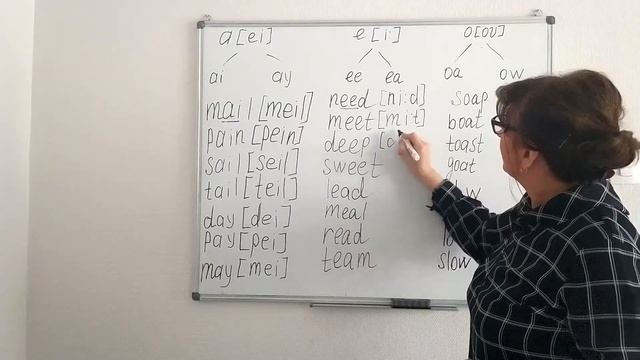 a [ei]
ai ay
mail [meil]
pain [pein]
sail [seil]
tail [teil]
day [dei]
pay [pei]
may [mei]
e [i:]
ee ea
need [ni:d]
meet [mi:t]
deep
sweet
lead
meal
read
team
o [ou]
oa ow
soap
boat
toast
goat
slow